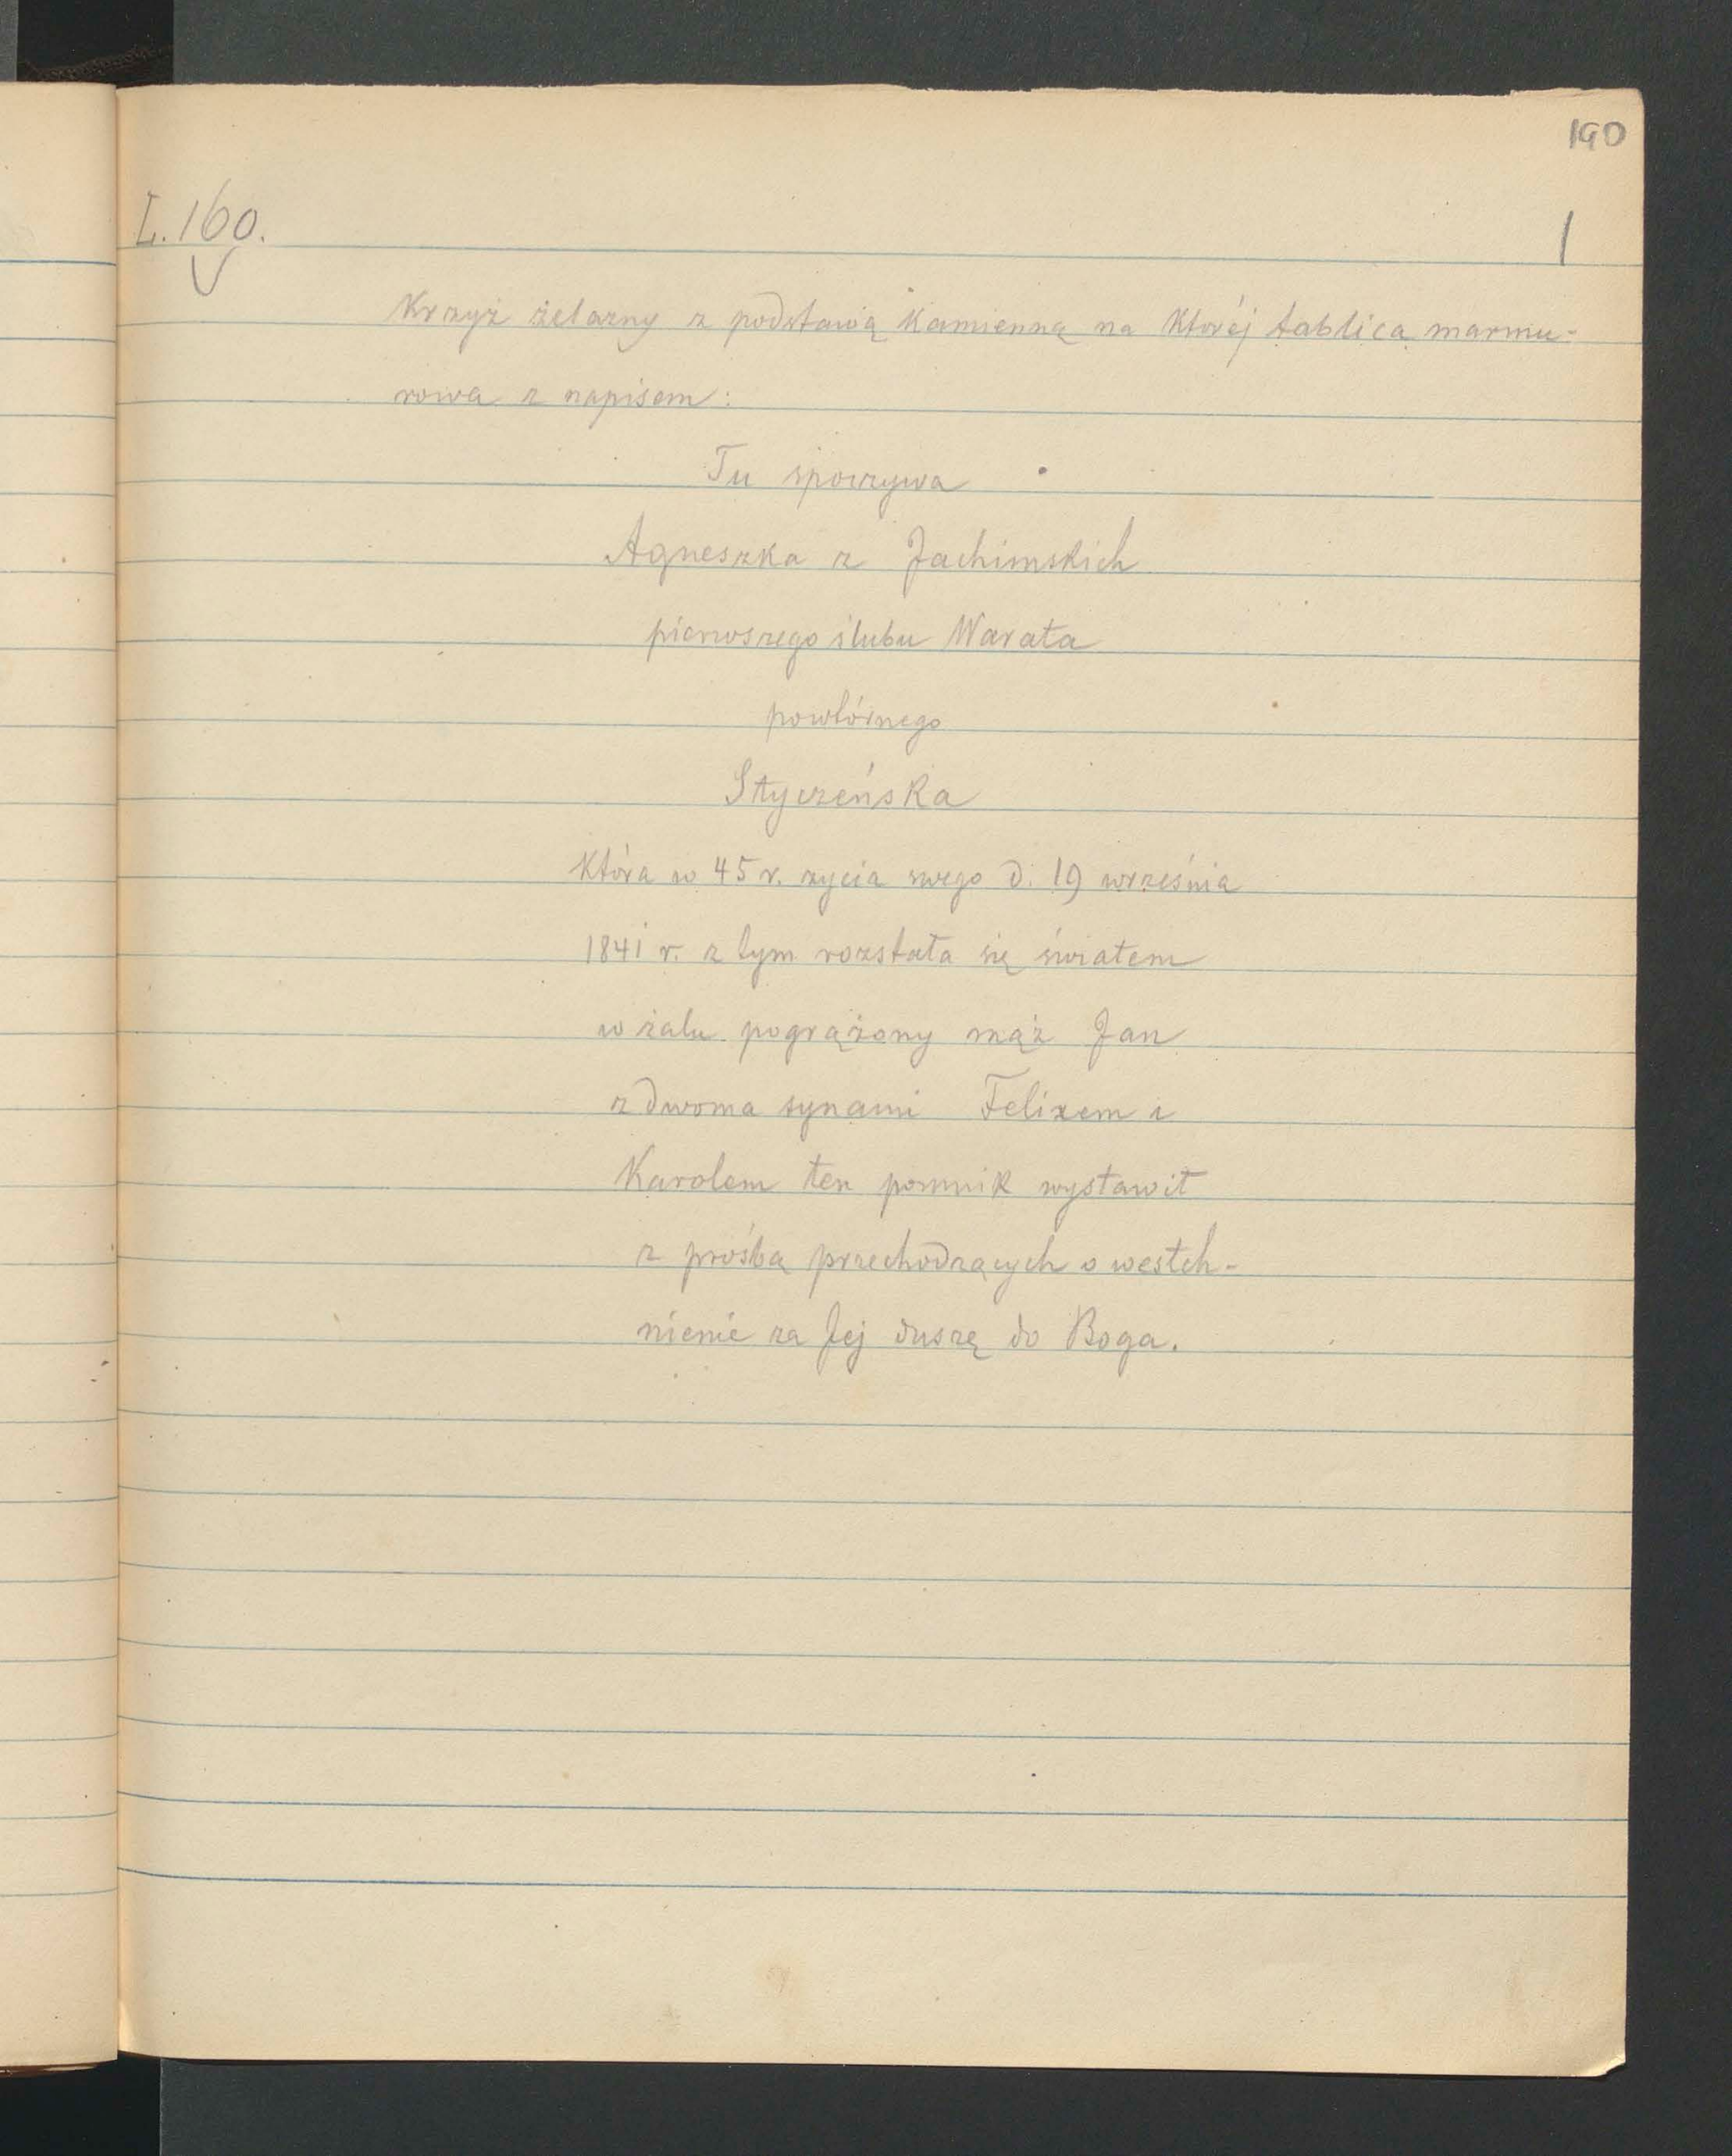 190
L. 160.
1
Krzyż żelazny z podstawą kamienną na której tablica marmu-
rowa z napisem:
Tu spoczywa
Agneszka z Jachimskich
pierwszego ślubu Warała
powtórnego
Styczeńska
która w 45 r. życia swego d. 19 września
1841 r. z tym rozstała się światem
w żalu pogrążony mąż Jan
z dwoma synami Felixem i
Karolem ten pomnik wystawił
z prośbą przechodzących o westch-
nienie za Jej duszę do Boga.